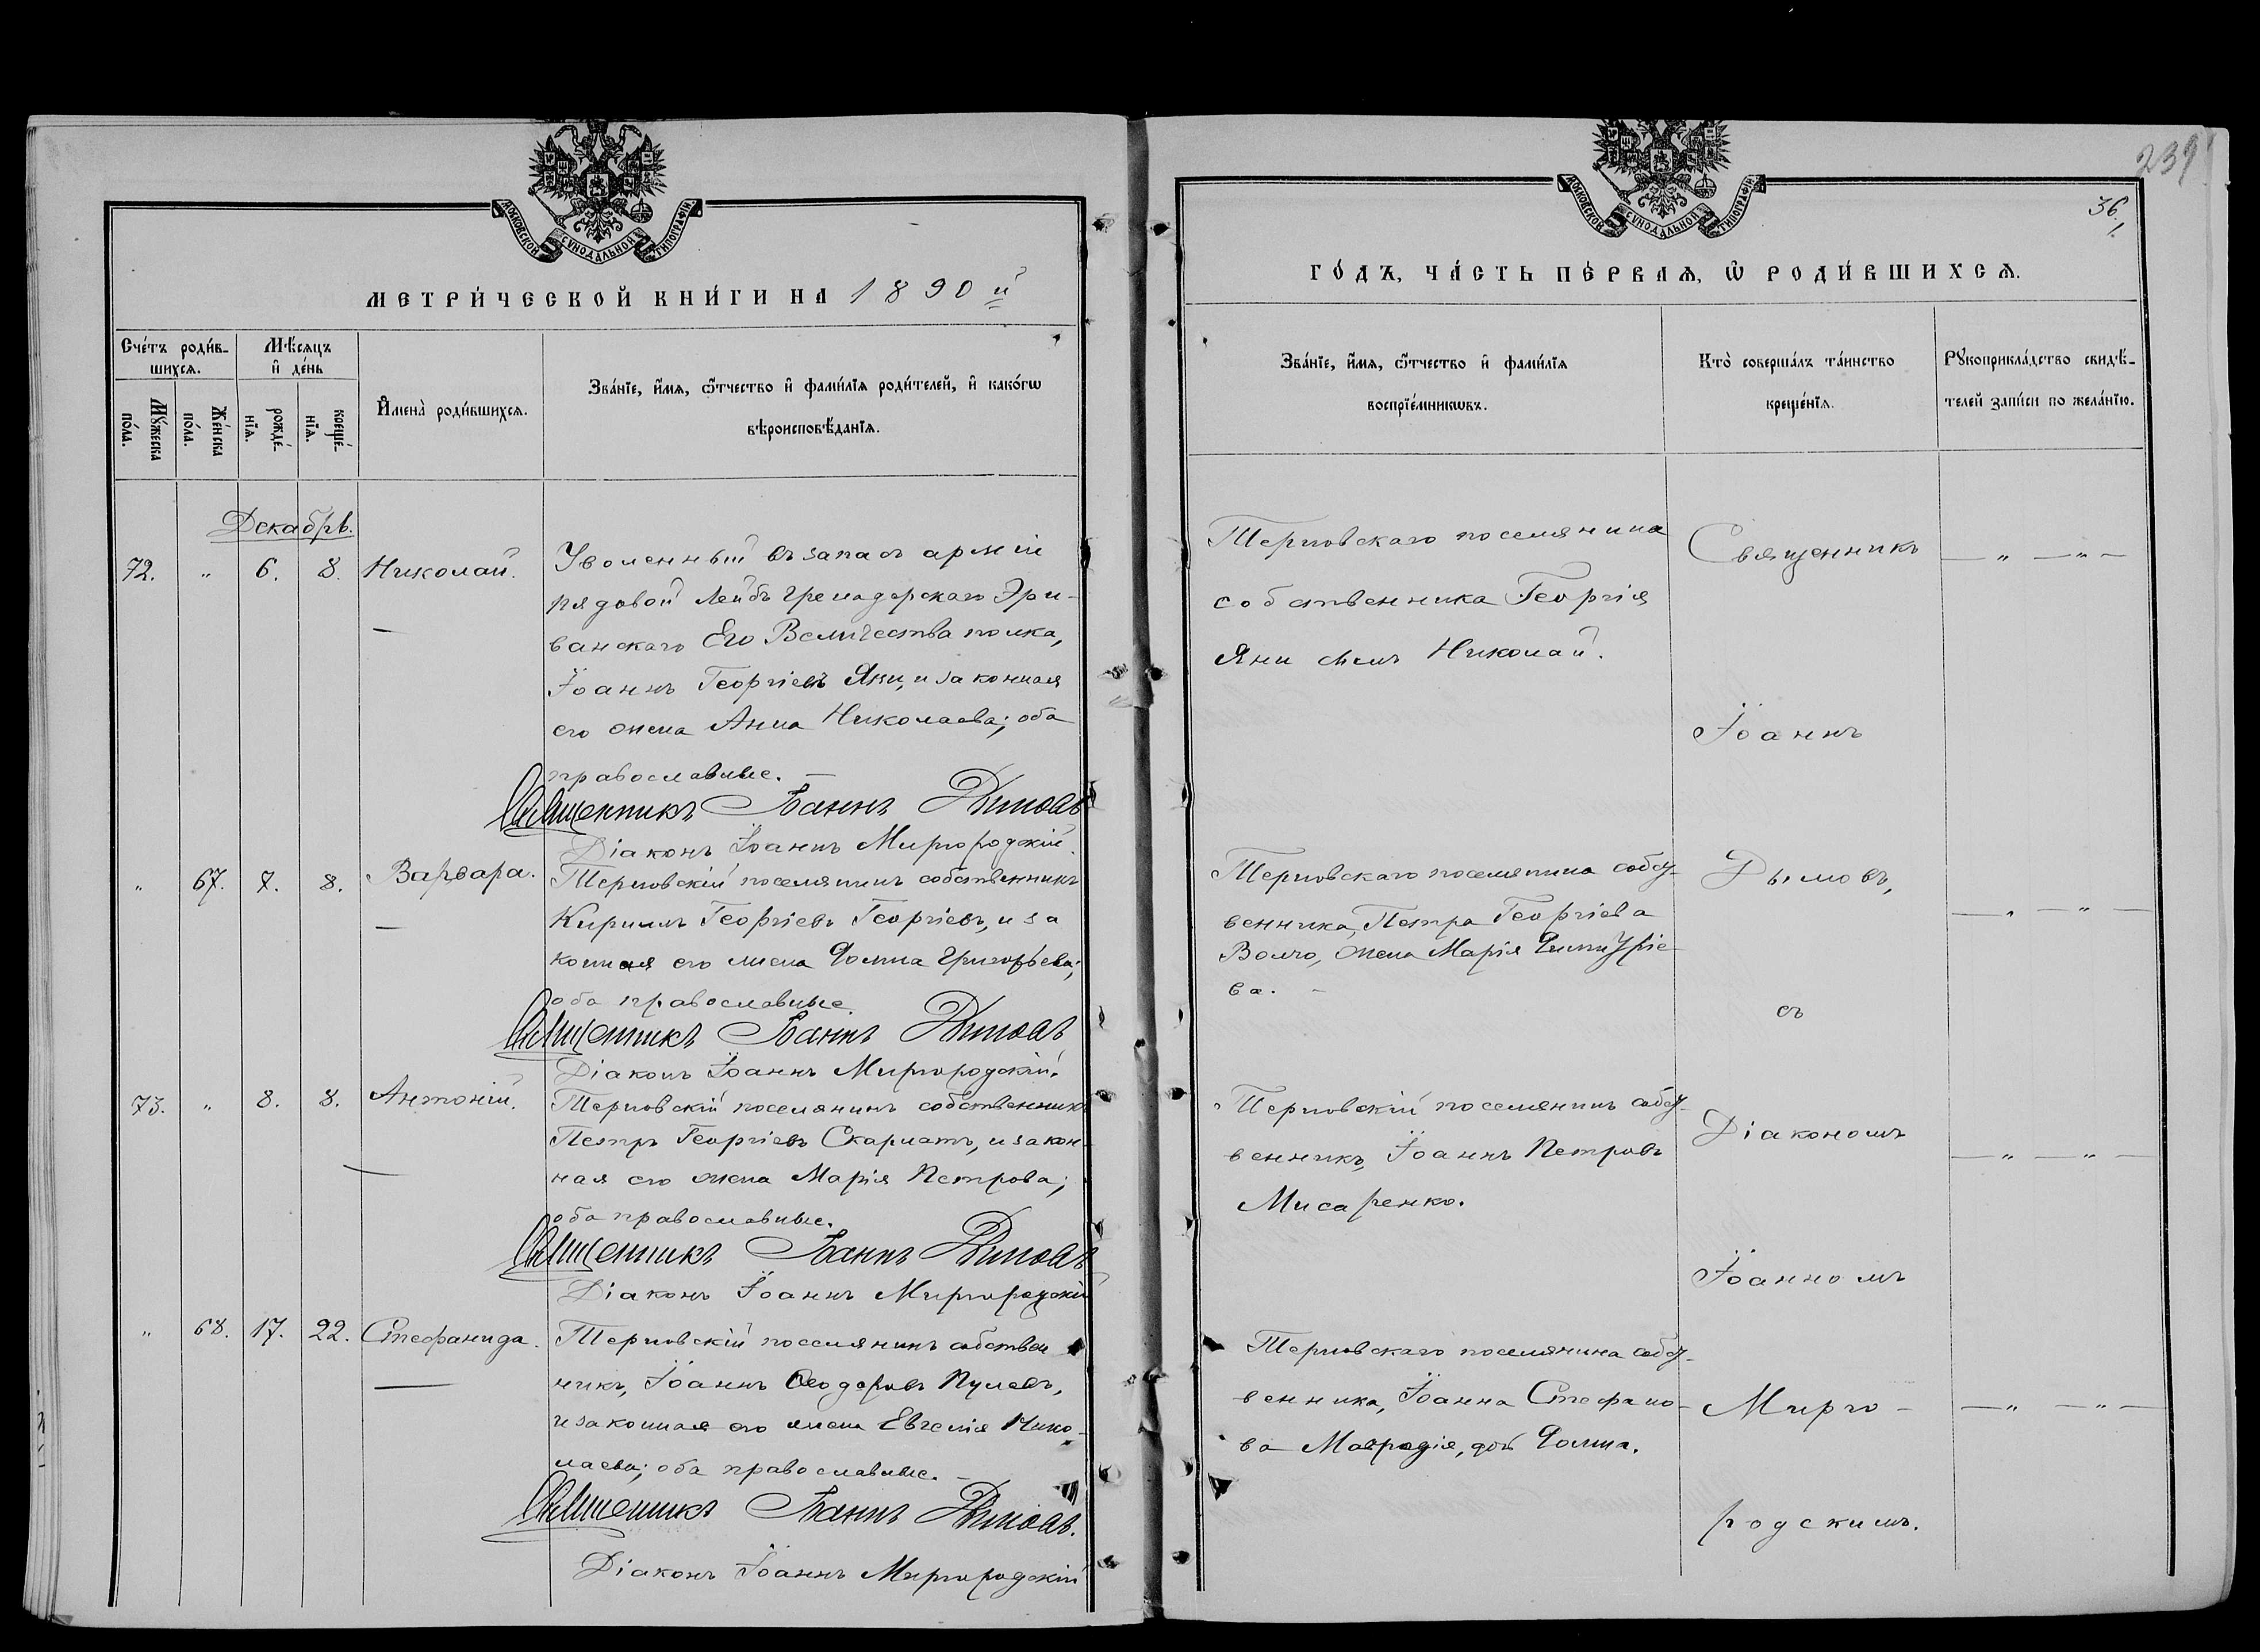 МОСКОВСКОЙ СѴНОДАЛЬНОЙ ТИПОГРАФІИ
МЕТРИ́ЧЕСКОЙ КНИ́ГИ НА 1890й
Сче́тъ роди́в-
шихсѧ.
Мѣ́сѧцъ
и҆ де́нь
Мꙋ́жеска
по́ла.
Же́нска
по́ла.
рожде́-
нїѧ.
креще́-
нїѧ.
И҆мена̀ роди́вшихсѧ.
Зва́нїе, и҆́мѧ, ѻ҆́тчество и҆ фами́лїѧ роди́телей, и҆ како́гѡ
вѣроисповѣ́данїѧ.
Декабрь.
72. " 6. 8. Николай.
Уволенный въ запасъ арміи
рядовой Лейбъ Гренадерскаго Эри-
ванскаго Его Величества полка,
Іоаннъ Георгіевъ Яни, и законная
его жена Анна Николаева; оба
православные. —
Священникъ Іоаннъ Дымовъ
Діаконъ Іоаннъ Миргородскій.
" 67. 7. 8. Варвара.
Терновскій поселянинъ собственникъ
Кириллъ Георгіевъ Георгіевъ, и за
конная его жена Домна Григорьева;
оба православные.
Священникъ Іоаннъ Дымовъ
Діаконъ Іоаннъ Миргородскій.
73. " 8. 8. Антоній.
Терновскій поселянинъ собственникъ
Петръ Георгіевъ Скарлатъ, и закон-
ная его жена Марія Петрова;
оба православные.
Священникъ Іоаннъ Дымовъ
Діаконъ Іоаннъ Миргородскій
" 68. 17. 22. Стефанида.
Терновскій поселянинъ собствен
никъ, Іоаннъ Ѳеодоровъ Пулевъ,
и законная его жена Евгенія Нико-
лаева; оба православные. —
Священникъ Іоаннъ Дымовъ.
Діаконъ Іоаннъ Миргородскій
239
36.
МОСКОВСКОЙ СѴНОДАЛЬНОЙ ТИПОГРАФІИ
ГО́ДЪ, ЧА́СТЬ ПЕ́РВАѦ, Ѡ҆ РОДИ́ВШИХСѦ.
Зва́нїе, и҆́мѧ, ѻ҆́тчество и҆ фами́лїѧ
воспрїе́мникѡвъ.
Кто̀ соверша́лъ та́инство
креще́нїѧ.
Рꙋкоприкла́дство свидѣ́-
телей за́писи по жела́нїю.
Терновскаго поселянина
собственника Георгія
Яни сынъ Николай.
Терновскаго поселянина собст-
венника, Петра Георгіева
Волчо, жена Марія
ва. —
Терновскій поселянинъ собст-
венникъ, Іоаннъ Петровъ
Мисаренко.
Терновскаго поселянина собст-
венника, Іоанна Стефано-
ва Мавродія, дочь Домна.
Священникъ
Іоаннъ
Дымовъ,
съ
Діакономъ
Іоанномъ
Мирго-
родскимъ.
— " — " —
— " — " —
— " — " —
— " — " —